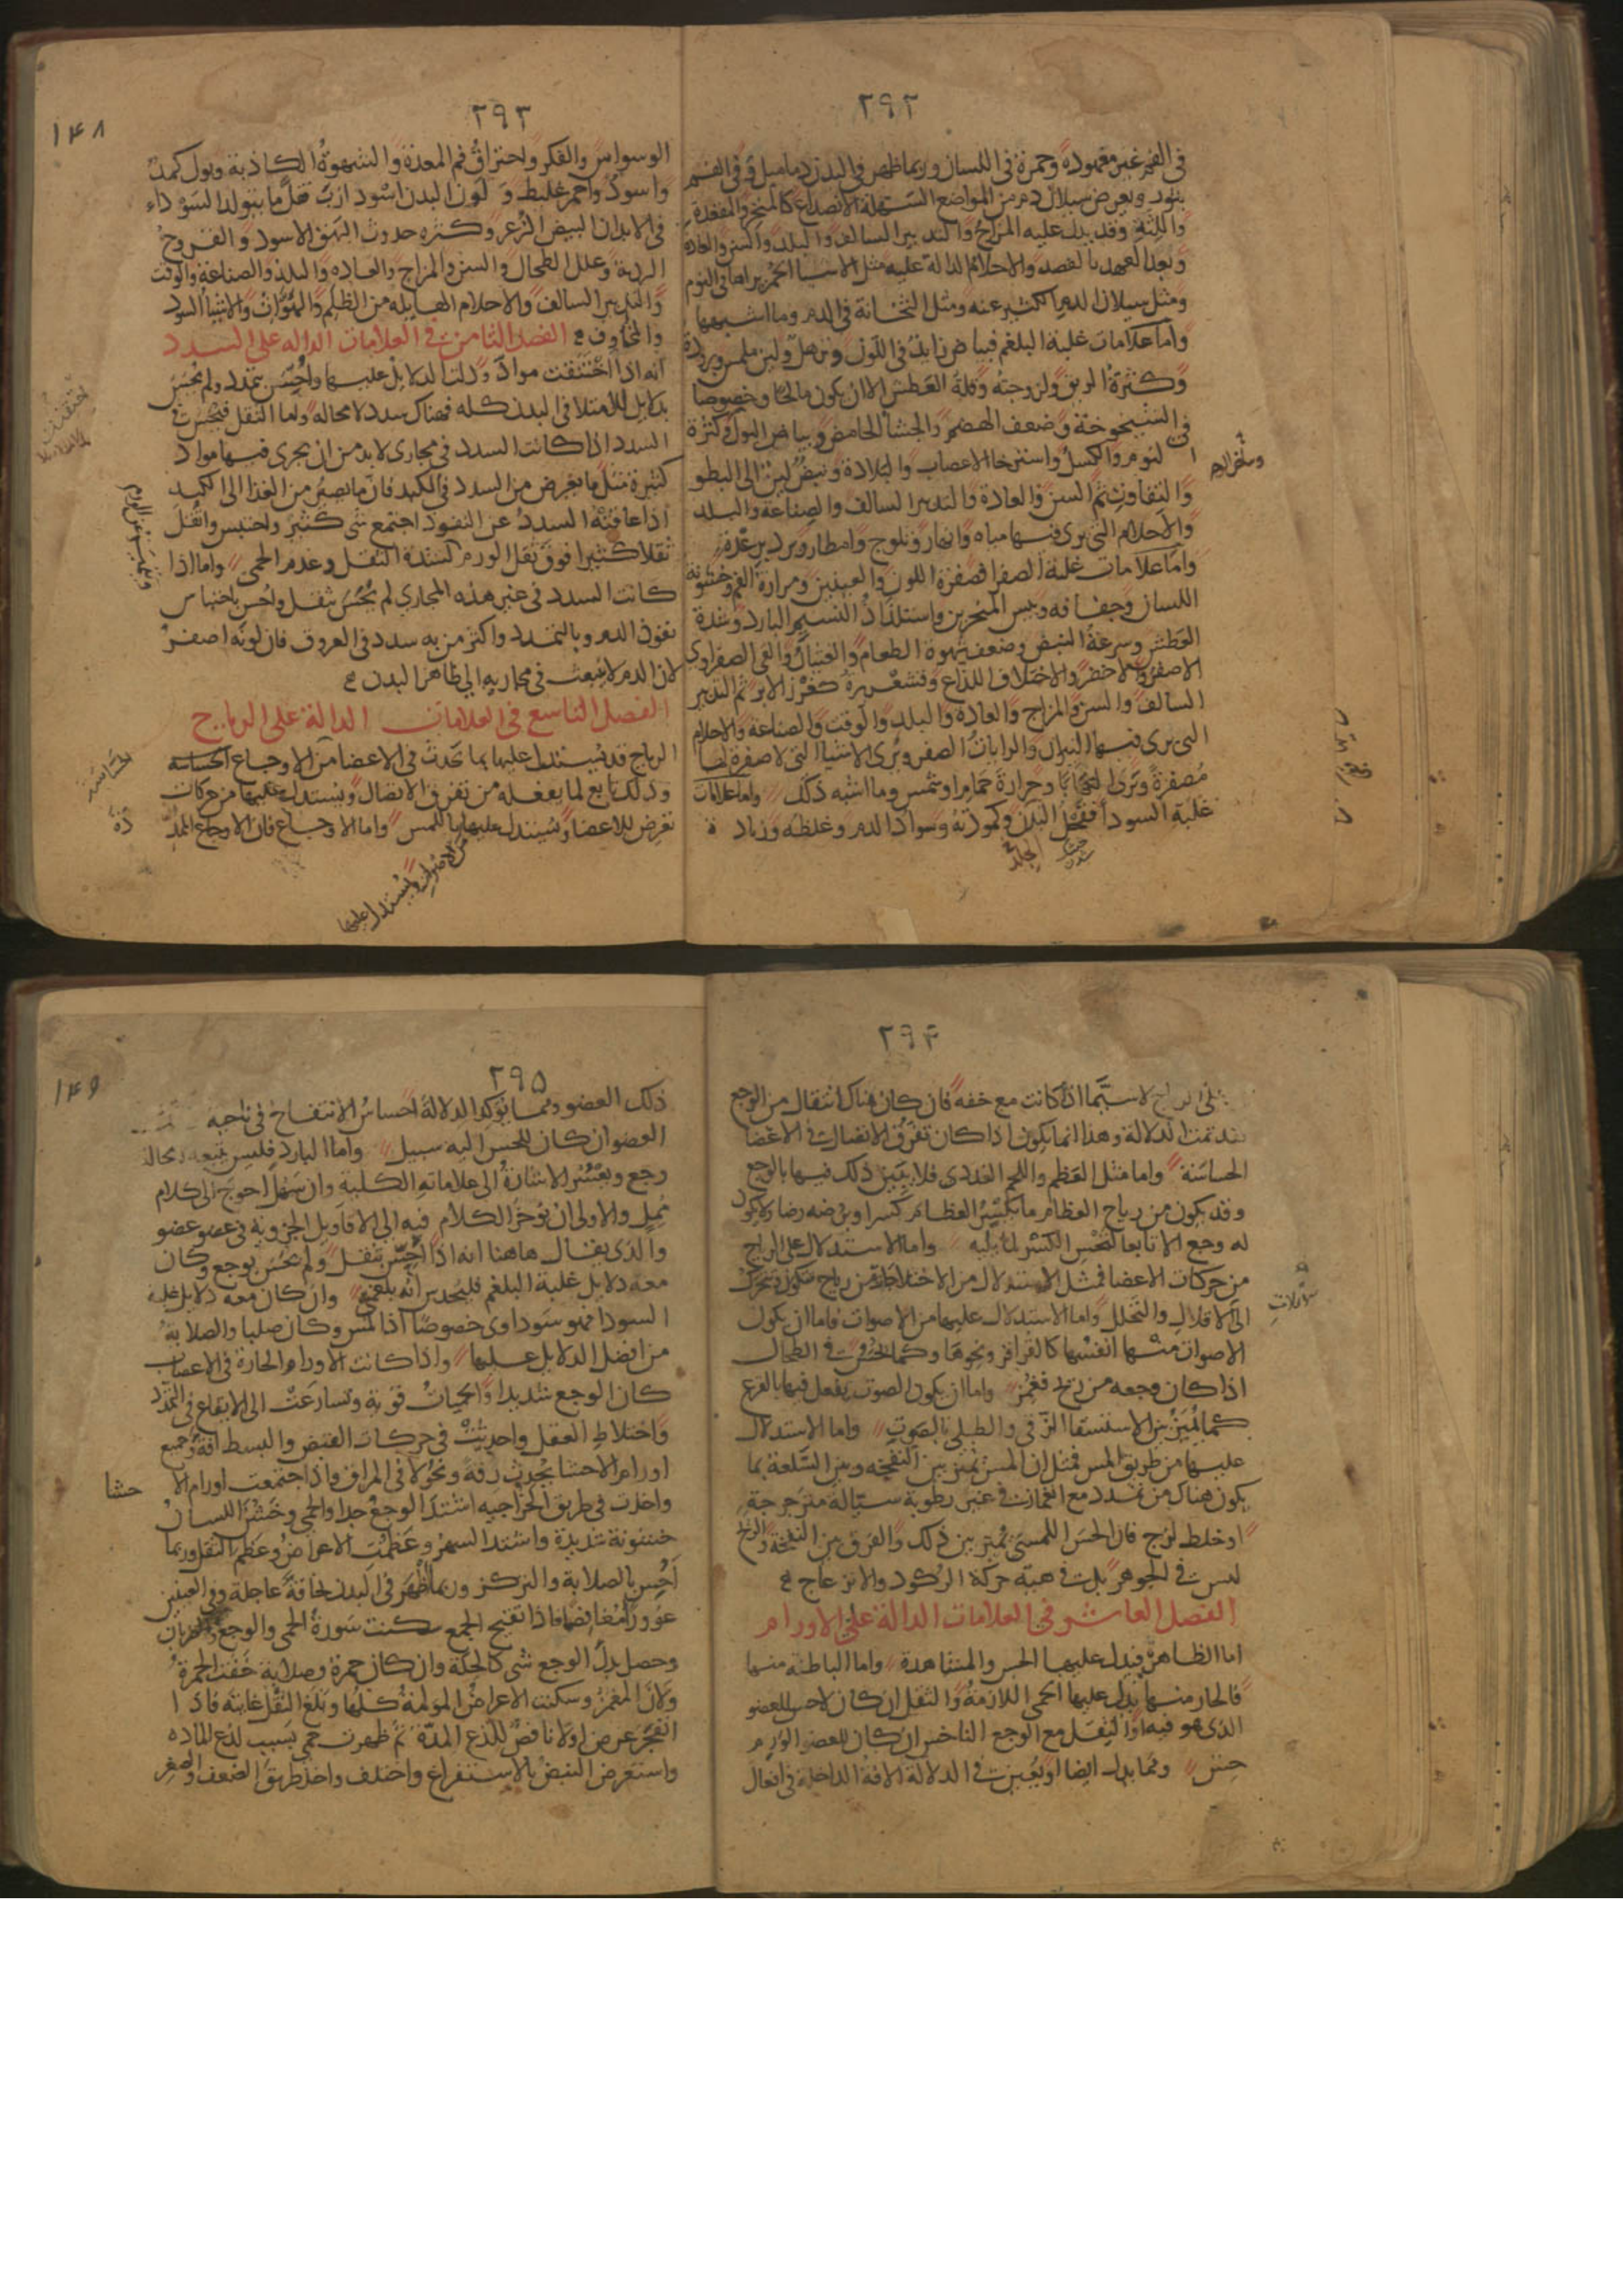 ٢٩٢
فى الفم غير معهودة وحمرة فى اللسان وربما ظهر فى البدن دماميل وفى الفم
بثور ويعرض سيلان دم من المواضع السهلة الانصداع كالمنخر والمقعدة
واللثة وقد يدل عليه المزاج والتدبير السالف والبلد والسن والعادة
وبعد العهد بالفصد والاحلام الدالة عليه مثل الاشيا الحمر يراها فى النوم
ومثل سيلان الدم الكثير عنه ومثل الثخانة فى الدم وما اشبهها
واما علامات غلبة البلغم فبياض زايد فى اللون وترهل ولين ملمس وبرودة
وكثرة الريق ولزوجته وقلة العطش الا ان يكون مالحا وخصوصا
فى الشيخوخة وضعف الهضم والجشا الحامض وبياض البول وكثرة
النوم والكسل واسترخا الاعصاب والبلادة ونبض لين الى البطو
والتفاوت ثم السن والعادة والتدبير السالف والصناعة والبلد
والاحلام التى يرى فيها مياه وانهار وثلوج وامطار وبرد برعدة
واما علامات غلبة الصفرا فصفرة اللون والعينين ومرارة الفم وخشونة
اللسان وجفافه ويبس المنخرين واستلذاذ النسيم البارد وشدة
العطش وسرعة النبض وضعف شهوة الطعام والغثيان والقى الصفراوى
الاصفر والاخضر والاختلاف اللذاع وقشعريرة كغرز الابر ثم التدبير
السالف والسن والمزاج والعادة والبلد والوقت والصناعة والاحلام
التى يرى فيها النيران والرايات الصفر ويرى الاشيا التى لا صفرة لها
مصفرة ويرى التهابا وحرارة حمام او شمس وما اشبه ذلك واما علامات
غلبة السودا فقحل البدن وكمودته وسواد الدم وغلظه وزيادة
الجلد
٢٩٣
١٤٨
الوسواس والفكر واحتراق فم المعدة والشهوة الكاذبة وبول كمد
واسود واحمر غليظ و لون البدن اسود ازب فقل ما يتولد السوداء
فى الابدان البيض الزعر وكثرة حدوث البهق الاسود والقروح
الردية وعلل الطحال والسن والمزاج والعاده والبلد والصناعة والوقت
والتدبير السالف والاحلام الهايله من الظلم والهوات والاشيا السود
والمخاوف الفصل الثامن فى العلامات الداله على السدد
انه اذا احتقنت مواد ودلت الدلايل عليها واحس بتمدد ولم يحس
بدلايل الامتلا فى البدن كله فهناك سدد لا محالة واما الثقل فيحس فى
السدد اذا كانت السدد فى مجارى لا بد من ان يجرى فيها مواد
كثيرة مثل ما يعرض من السدد فى الكبد فان ما يصير من الغذا الى الكبد
اذا عاقته السدد عن النفوذ اجتمع شى كثير واحتبس واثقل
ثقلا كثيرا فوق ثقل الورم لشدة الثقل وعدم الحمى واما اذا
كانت السدد فى غير هذه المجارى لم يحس بثقل واحس باحتباس
نفوذ الدم وبالتمدد واكثر من به سدد فى العروق فان لونه اصفر
لان الدم لا ينبعث فى مجاريه الى ظاهر البدن
الفصل التاسع فى العلامات الدالة على الرياح
الرياح قد يستدل عليها بما يحدث فى الاعضا من الاوجاع الحساسه
وذلك تابع لما يفعله من تفرق الاتصال ويستدل عليها من حركات
تعرض للاعضا ويستدل عليها باللمس واما الاوجاع فان الاوجاع الممد
من الاصوات ويستدل عليها
الحساسة
دة
٢٩٤
لا سيما اذا كانت مع خفه فان كان هناك انتقال من الوجع
فقد تمت الدلالة وهذا انما يكون اذا كان تفرق الاتصال فى الاعضا
الحساسة واما مثل العظم واللحم الغددى فلا يتبين ذلك فيها بالوجع
وقد يكون من رياح العظام ما يكسر العظام كسرا ويرضه رضا ولا يكون
له وجع الا تابعا لنخس الكسر لما يليه واما الاستدلال على الرياح
من حركات الاعضا فمثل الاستدلال من الاختلاجات من رياح تتكون وتتحرك
الى الاقلال والتحلل واما الاستدلال عليها من الاصوات فاما ان يكون
الاصوات منها انفسها كالقراقر ونحوها وكما يحس فى الطحال
اذا كان وجعه من ريح فغمز واما ان يكون الصوت يفعل فيها بالقرع
كما يميز بين الاستسقا الزقى والطبلى بالصوت واما الاستدلال
عليها من طريق المس فمثل ان المس يميز بين النفخه وبين السلعة بما
يكون هناك من تمدد مع انغماز فى غير رطوبة سيالة مترجرجة
او خلط لزج فان الحس اللمسى يميز بين ذلك والفرق بين النفخة والريح
ليس فى الجوهر بل فى هيئة حركة الركود والانزعاج
الفصل العاشر فى العلامات الدالة على الاورام
اما الظاهر فيدل عليها الحس والمشاهدة واما الباطنه منها
فالحار منها يدل عليها الحمى اللازمة والثقل ان كان لا حس للعضو
الذى هو فيه او الثقل مع الوجع الناخس ان كان للعضو الوارم
حس ومما يدل ايضا او يعين فى الدلالة الافة الداخلة فى افعال
٢٩٥
١٤٩
ذلك العضو ومما يوكد الدلالة احساس الانتفاخ فى ناحية
العضو ان كان للحس اليه سبيل واما البارد فليس يتبعه لا محالة
وجع ويعسر الاشارة الى علاماته الكلية وان سهل احوج الى كلام
ممل والاولى ان نوخر الكلام فيه الى الاقاويل الجزوية فى عضو عضو
والذى يقال هاهنا انه اذا احس بثقل ولم يحس بوجع وكان
معه دلايل غلبة البلغم فليحدس انه بلغمى وان كان معه دلايل غلبة
السودا فهو سوداوى خصوصا اذا لمس وكان صلبا والصلابة
من افضل الدلايل عليها واذا كانت الاورام الحارة فى الاعصاب
كان الوجع شديدا والحميات قوية وتسارعت الى الايقاع فى التمدد
واختلاط العقل واحدثت فى حركات القبض والبسط افة وجميع
اورام الاحشا يحدث رقة ونحولا فى المراق واذا اجتمعت اورام الا حشا
واخذت فى طريق الخراجيه اشتد الوجع جدا والحمى وخشن اللسان
خشونة شديدة واشتد السهر وعظمت الاعراض وعظم الثقل وربما
احس بالصلابة والتركز وربما ظهر فى البدن نحافة عاجلة وفى العينين
غوور مغافصا فاذا تقيح الجمع سكنت سورة الحمى والوجع والضربان
وحصل بدل الوجع شى كالحكة وان كان حمرة وصلابة خفت الحمرة
ولان المغمز وسكنت الاعراض المولمة كلها وبلغ الثقل غايته فاذا
انفجر عرض اولا نافض للذع المدة ثم ظهرت حمى بسبب لذع الماده
واستعرض النبض بالاستفراغ واختلف واخذ طريق الضعف والصغر